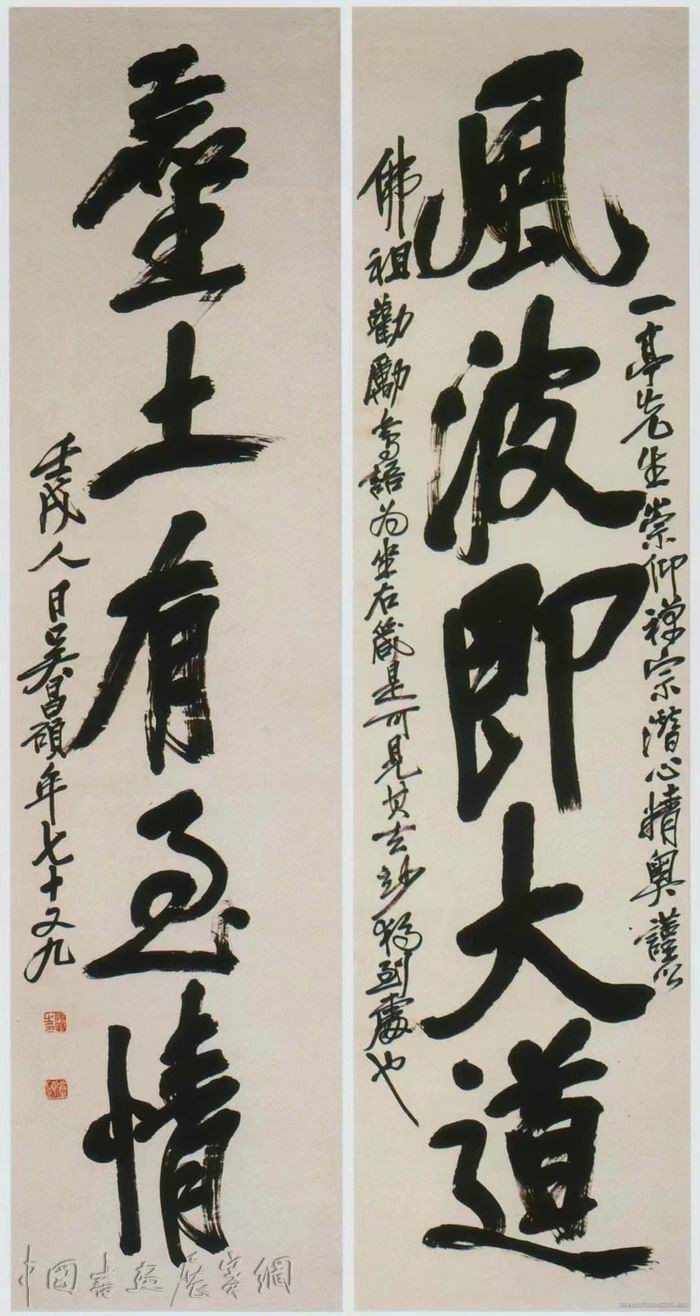 一亭先生崇仰禪宗潛心精奧謹以
風波即大道
佛祖勸勵語為坐右箴是可見其玄妙獨到處也
塵土有至情
壬戌人日吳昌碩年七十又九
中国書画展賽網